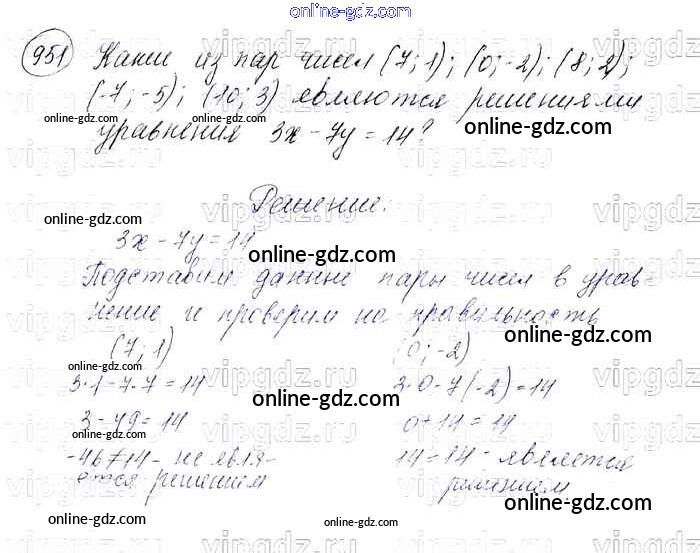 online-gdz.com
951 Какие из пар чисел (7; 1); (0; -2); (8; 2);
online-gdz.com
(-7; -5); (10; 3) являются решениями
online-gdz.com
уравнения 3x - 7y = 14?
online-gdz.com
vipgdz.ru vipgdz.ru vipgdz
Решение:
online-gdz.com
3x - 7y = 14
online-gdz.com
Подставим данные пары чисел в урав-
нение и проверим на правильность
online-gdz.com
(7; 1) (0; -2)
online-gdz.com
3·1 - 7·7 = 14 3·0 - 7(-2) = 14
online-gdz.com
3 - 49 = 14 0 + 14 = 14
online-gdz.com online-gdz.com
-46 ≠ 14 - не явля- 14 = 14 - является
ется решением решением
online-gdz.com
online-gdz.com
online-gdz.com